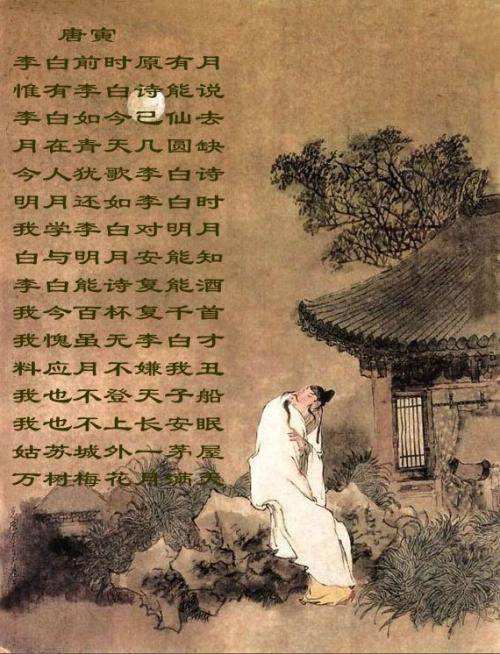 唐寅
李白前时原有月
惟有李白诗能说
李白如今已仙去
月在青天几圆缺
今人犹歌李白诗
明月还如李白时
我学李白对明月
白与明月安能知
李白能诗复能酒
我今百杯复千首
我愧虽无李白才
料应月不嫌我丑
我也不登天子船
我也不上长安眠
姑苏城外一茅屋
万树梅花月满天